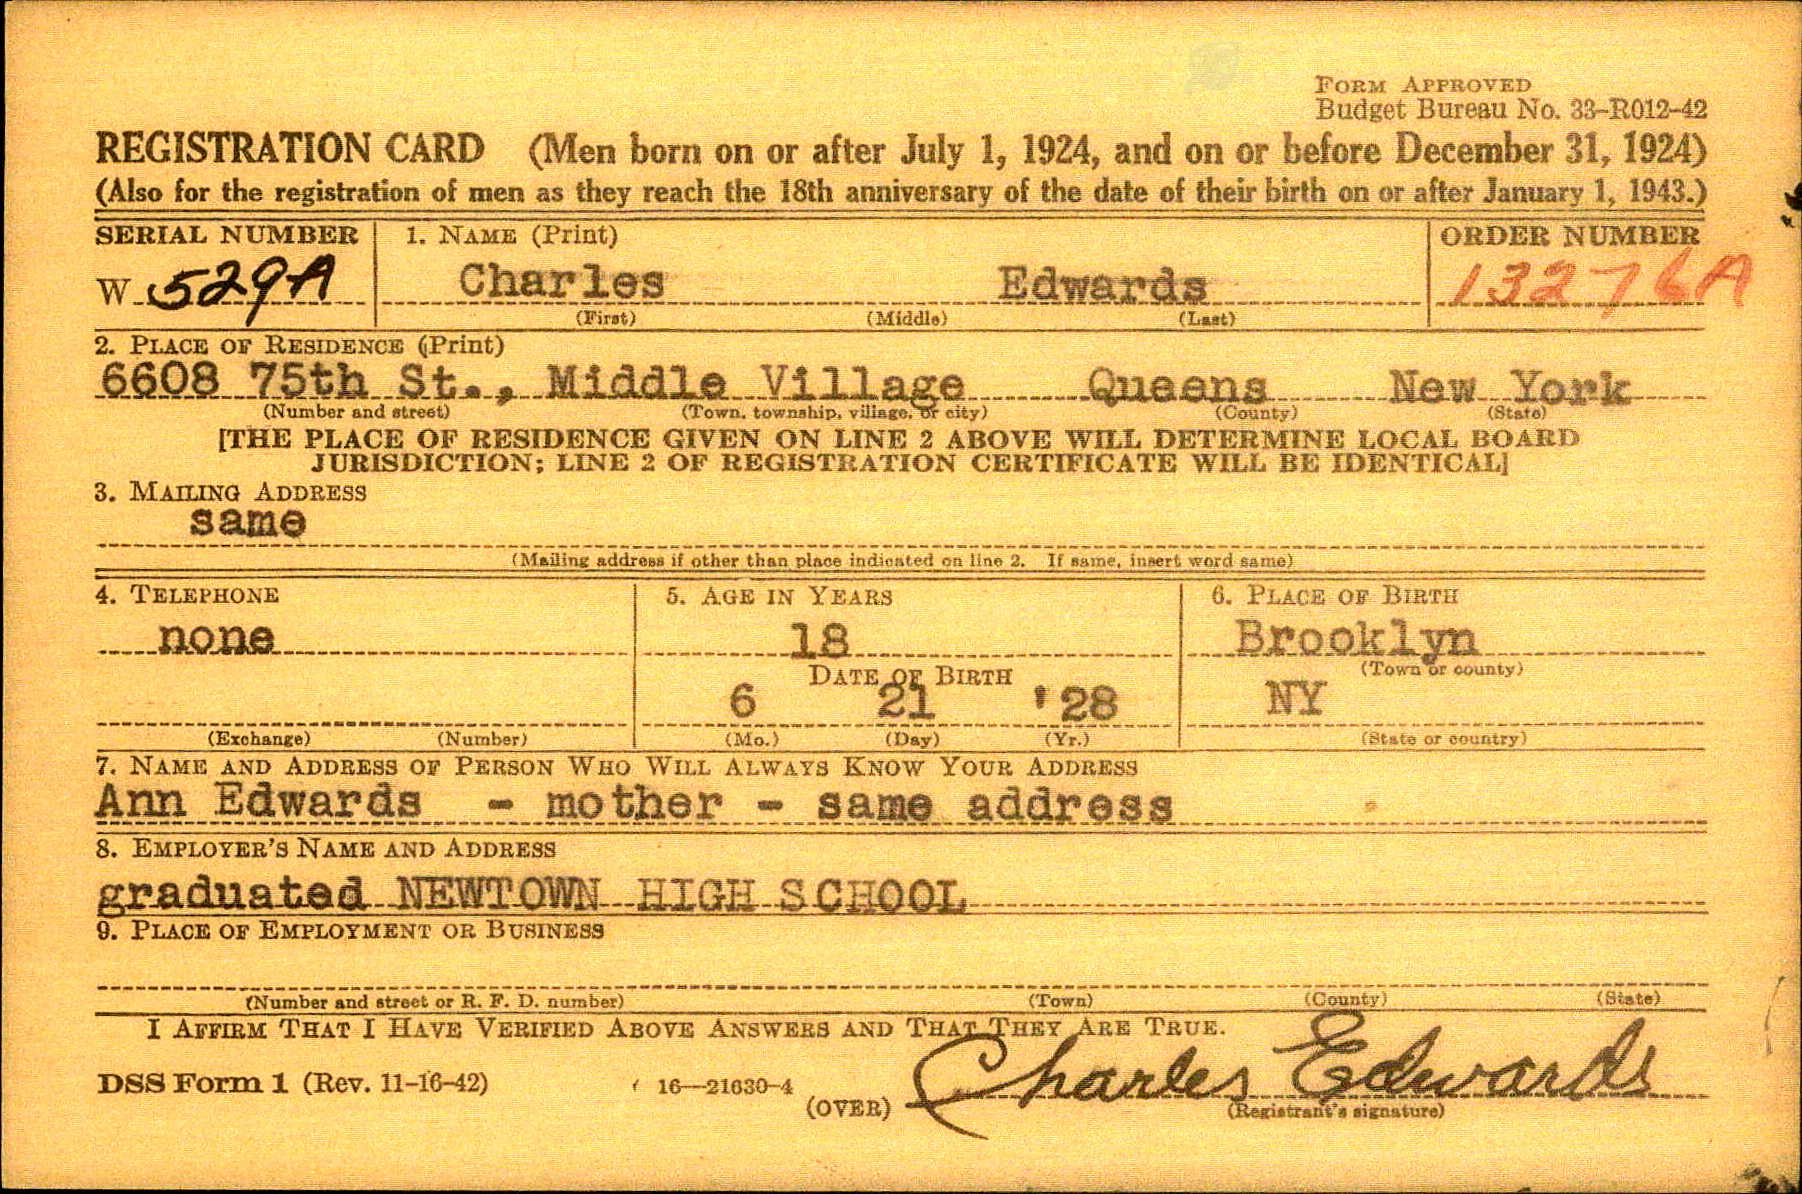 FORM APPROVED
Budget Bureau No. 33-R012-42
REGISTRATION CARD (Men born on or after July 1, 1924, and on or before December 31, 1924)
(Also for the registration of men as they reach the 18th anniversary of the date of their birth on or after January 1, 1943.)
SERIAL NUMBER 1. NAME (Print) ORDER NUMBER
W 529A Charles Edwards 13276A
(First) (Middle) (Last)
2. PLACE OF RESIDENCE (Print)
6608 75th St., Middle Village Queens New York
(Number and street) (Town, township, village, or city) (County) (State)
[THE PLACE OF RESIDENCE GIVEN ON LINE 2 ABOVE WILL DETERMINE LOCAL BOARD
JURISDICTION; LINE 2 OF REGISTRATION CERTIFICATE WILL BE IDENTICAL]
3. MAILING ADDRESS
same
(Mailing address if other than place indicated on line 2. If same, insert word same)
4. TELEPHONE 5. AGE IN YEARS 6. PLACE OF BIRTH
none 18 Brooklyn
DATE OF BIRTH (Town or county)
6 21 '28 NY
(Exchange) (Number) (Mo.) (Day) (Yr.) (State or country)
7. NAME AND ADDRESS OF PERSON WHO WILL ALWAYS KNOW YOUR ADDRESS
Ann Edwards - mother - same address
8. EMPLOYER'S NAME AND ADDRESS
graduated NEWTOWN HIGH SCHOOL
9. PLACE OF EMPLOYMENT OR BUSINESS
(Number and street or R. F. D. number) (Town) (County) (State)
I AFFIRM THAT I HAVE VERIFIED ABOVE ANSWERS AND THAT THEY ARE TRUE.
DSS Form 1 (Rev. 11-16-42) 16—21630-4 (OVER) Charles Edwards
(Registrant's signature)